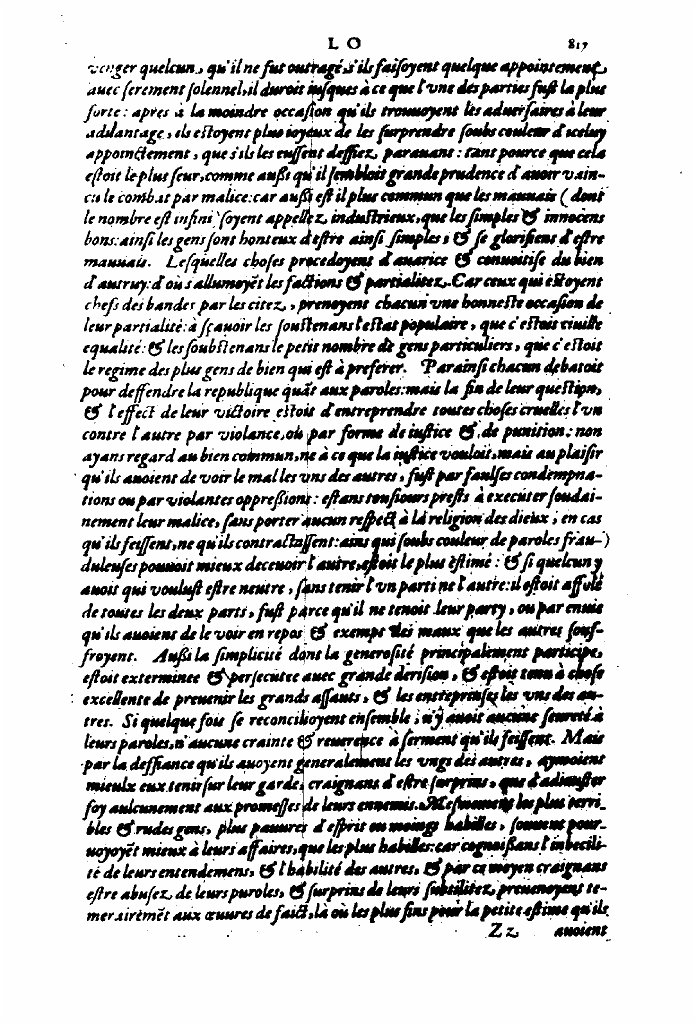 L O 817
venger quelcun, qu'il ne fut outragé, s'ils faiſoyent quelque appointement,
auec ſerement ſolennel, il duroit iuſques à ce que l'vne des parties fuſt la plus
forte: apres à la moindre occaſion qu'ils trouuoyent les aduerſaires à leur
aduantage, ils eſtoyent plus ioyeux de les ſurprendre ſoubs couleur d'iceluy
appoinctement, que s'ils les euſſent deffiez parauant: tant pource que cela
eſtoit le plus ſeur, comme auſſi qu'il ſembloit grande prudence d'auoir vain-
cu le combat par malice: car auſſi eſt il plus commun que les mauuais (dont
le nombre eſt infini) ſoyent appellez induſtrieux, que les ſimples & innocens
bons: ainſi les gens ſont honteux d'eſtre ainſi ſimples, & ſe glorifient d'eſtre
mauuais. Leſquelles choſes procedoyent d'auarice & conuoitiſe du bien
d'autruy: d'où s'allumoyẽt les factions & partialitez. Car ceux qui eſtoyent
chefs des bandes par les citez, prenoyent chacun vne honneſte occaſion de
leur partialité: à ſçauoir les ſouſtenans l'eſtat populaire, que c'eſtoit ciuille
equalité: & les ſoubſtenans le petit nombre de gens particuliers, que c'eſtoit
le regime des plus gens de bien qui eſt à preferer. Parainſi chacun debatoit
pour deffendre la republique quãt aux paroles: mais la fin de leur queſtion,
& l'effect de leur victoire eſtoit d'entreprendre toutes choſes cruelles l'vn
contre l'autre par violance, où par forme de iuſtice & de punition: non
ayans regard au bien commun, ne à ce que la iuſtice vouloit, mais au plaiſir
qu'ils auoient de voir le mal les vns des autres, fuſt par faulſes condempna-
tions ou par violantes oppreſſions: eſtans touſiours preſts à executer ſoudai-
nement leur malice, ſans porter aucun reſpect à la religion des dieux, en cas
qu'ils feiſſent, ne qu'ils contractaſſent: ains qui ſoubs couleur de paroles frau-
duleuſes pouuoit mieux deceuoir l'autre, eſtoit le plus eſtimé: & ſi quelcun y
auoit qui vouluſt eſtre neutre, ſans tenir l'vn parti ne l'autre: il eſtoit affolé
de toutes les deux parts, fuſt parce qu'il ne tenoit leur party, ou par enuie
qu'ils auoient de le voir en repos & exempt des maux que les autres ſouf-
froyent. Auſſi la ſimplicité dont la generoſité principalement participe,
eſtoit exterminee & perſecutee auec grande deriſion, & eſtoit tenu à choſe
excellente de preuenir les grands aſſauts, & les entreprinſes les vns des au-
tres. Si quelque fois ſe reconcilioyent enſemble, n'y auoit aucune ſeureté à
leurs paroles, n'aucune crainte & reuerence à ſerment qu'ils feiſſent. Mais
par la deffiance qu'ils auoyent generalement les vngs des autres, aymoient
mieulx eux tenir ſur leur garde, craignans d'eſtre ſurprins, que d'adiouſter
foy aulcunement aux promeſſes de leurs ennemis. Meſmement les plus terri-
bles & rudes gens, plus pauures d'eſprit ou moings habilles, ſouuent pour-
uoyoyẽt mieux à leurs affaires, que les plus habilles: car cognoiſſans l'imbecili-
té de leurs entendemens, & l'habilité des autres, & par ce moyen craignans
eſtre abuſez de leurs paroles, & ſurprins de leurs ſubtilitez, preuenoyent te-
merairemẽt aux œuures de faict, là où les plus fins pour la petite eſtime qu'ils
Zz auoient